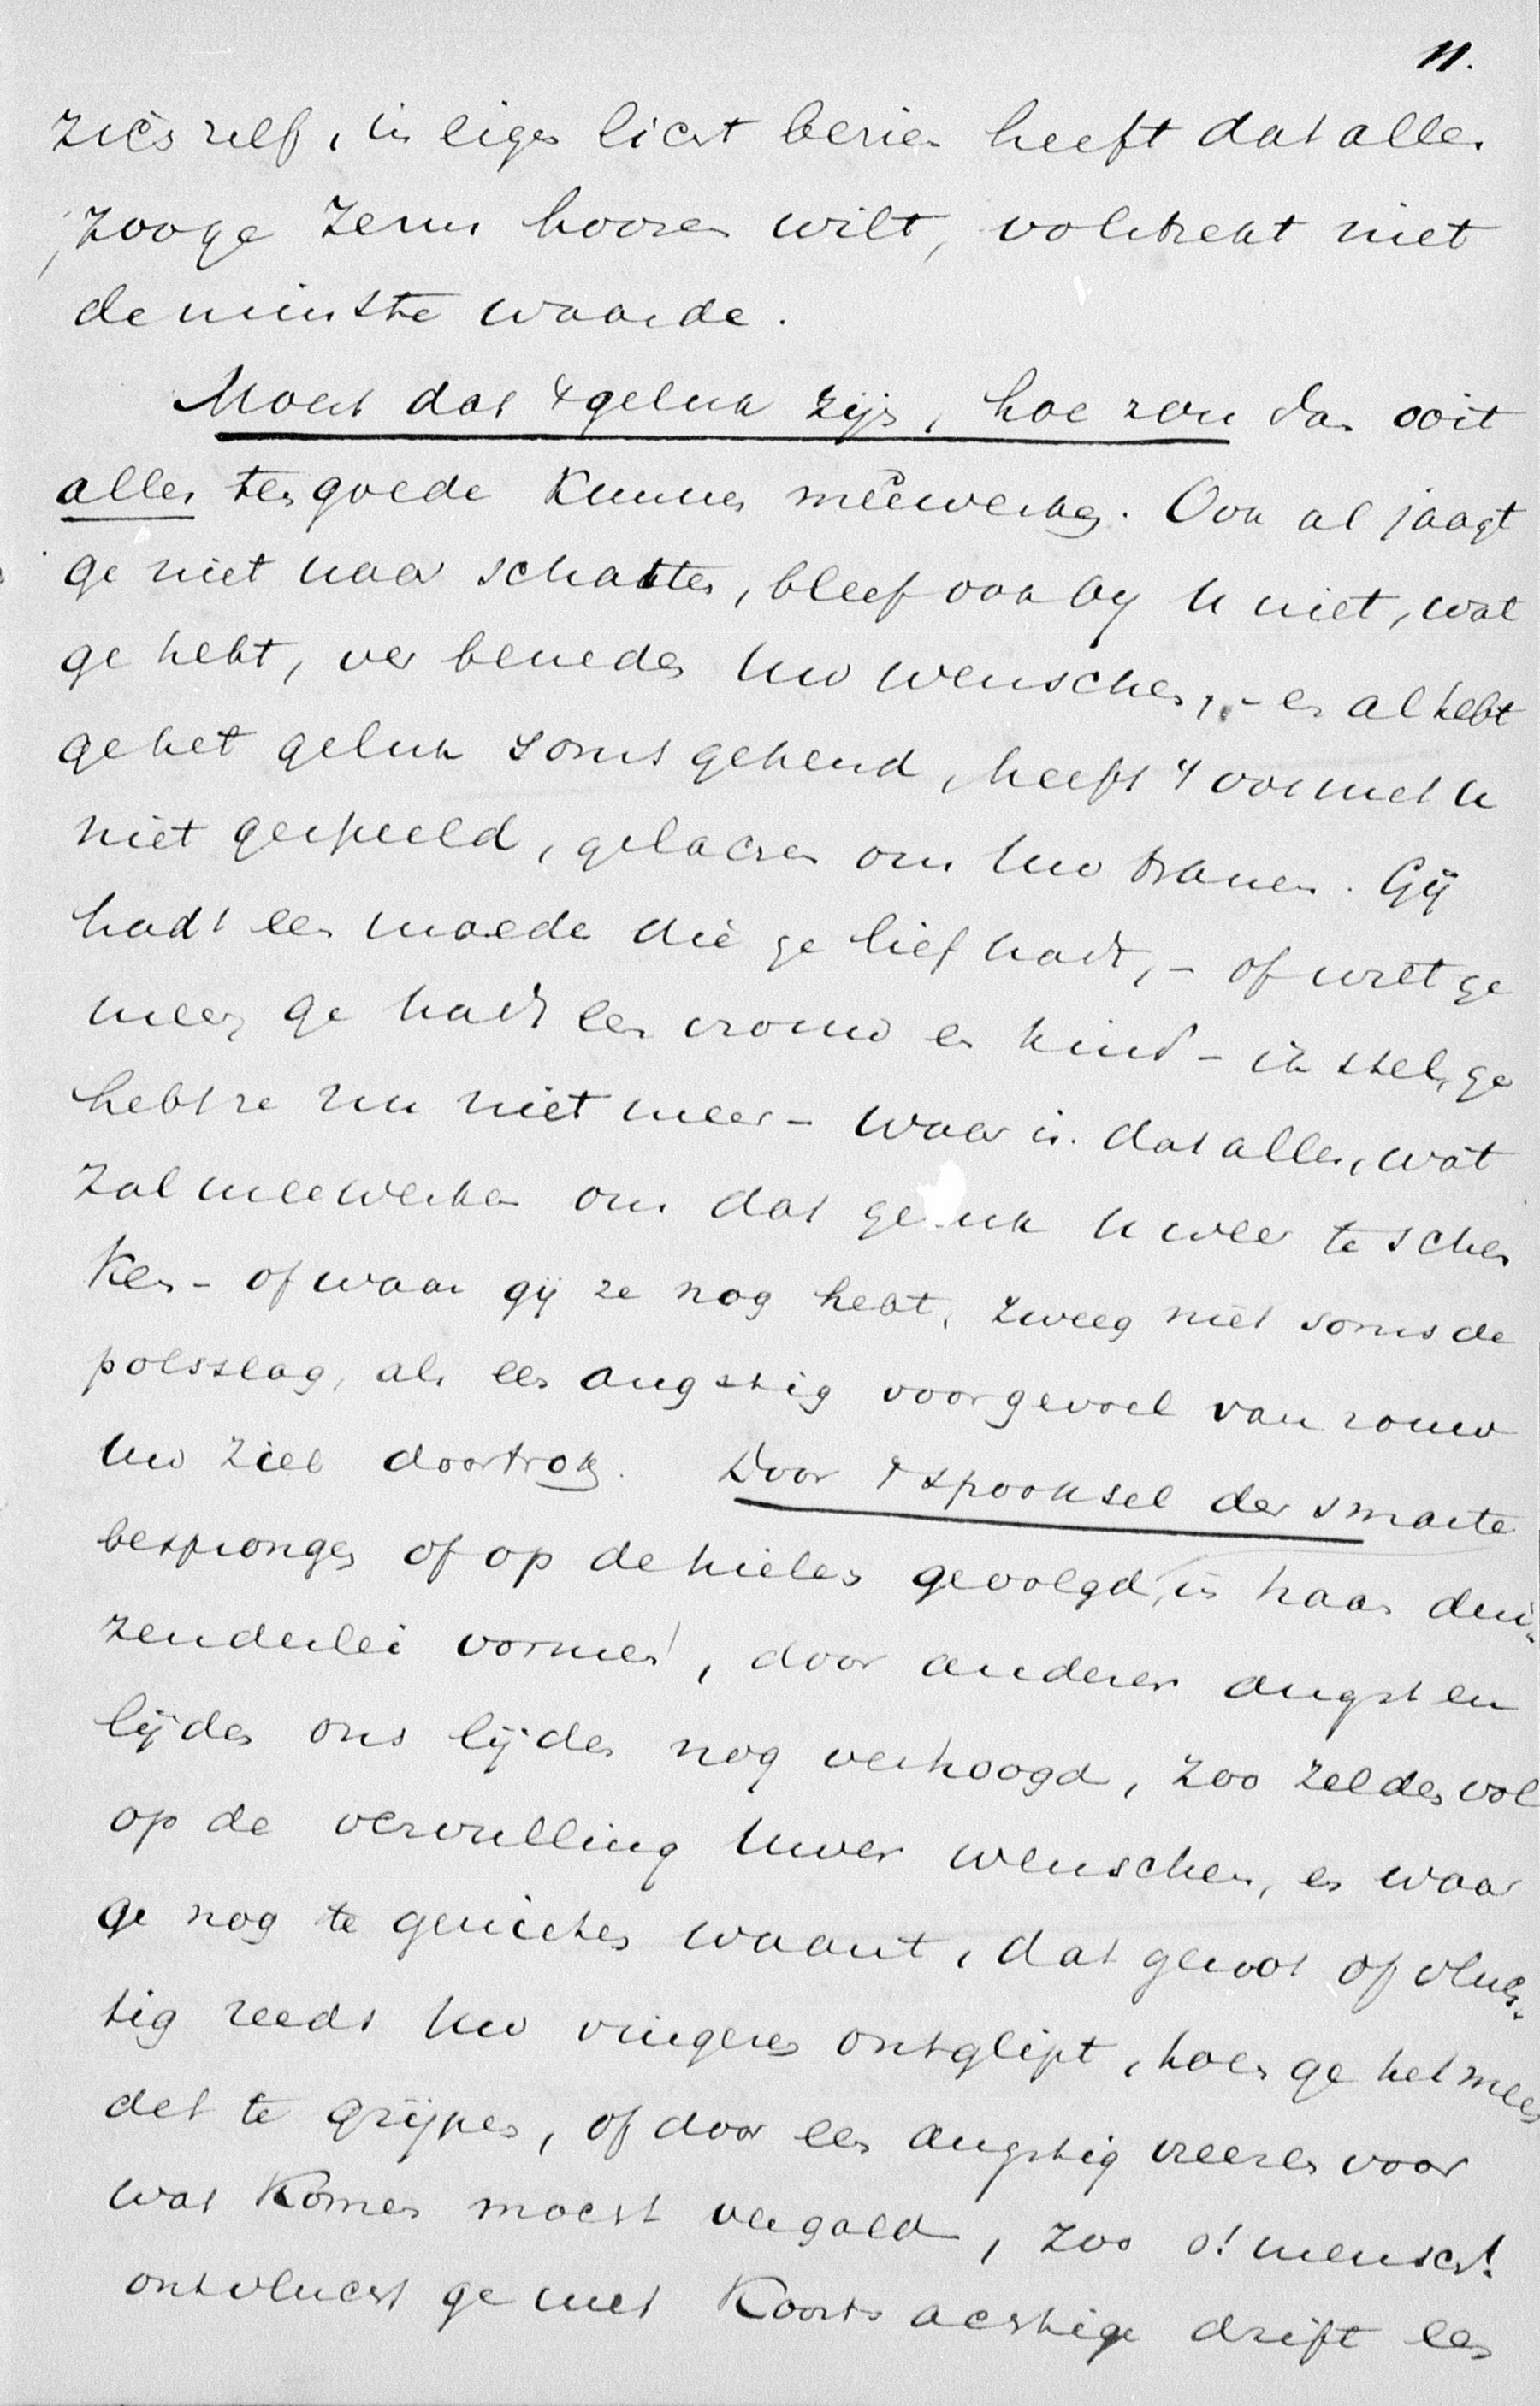 11.
zich zelf, in eigen licht bezien heeft dat alles
, zooge Zenu hooren wilt, volstrekt niet
de minste waarde.
Moest dat 't geluk zijn, hoe zou dan ooit
alles ten goede kunnen meêwerken. Ook al jaagt
ge niet naar schatten, bleef ook by U niet, wat
ge hebt, ver beneden Uw wenschen, - en al hebt
ge het geluk soms gekend, heeft 't ook met U
niet gespeeld, gelachen om Uw tranen. Gij
hadt een moeder die ge lief hadt, - of wilt ge
meer, ge hadt een vrouw en kind - ik stel, ge
hebt ze nu niet meer - waar is dat alles, wat
zal meewerken om dat geluk U weer te schen
ken - of waar gij ze nog hebt, zweeg niet soms de
polsslag, als een angstig voorgevoel van rouw
Uw ziel doortrok. Door 't spooksel der smarte
besprongen of op de hielen gevolgd, in haar dui-
zenderlei vormen, door anderer angst en
lijden ons lijden nog verhoogd, zoo zelden vol
op de vervulling Uwer wenschen, en waar
ge nog te genieten waant, dat genot of vluch-
tig reeds Uw vingeren ontglipt, toen ge het meen
det te grijpen, of door een angstig vreezen voor
wat komen moest vergald, zoo o! mensch!
ontvlucht ge met koortsachtige drift een